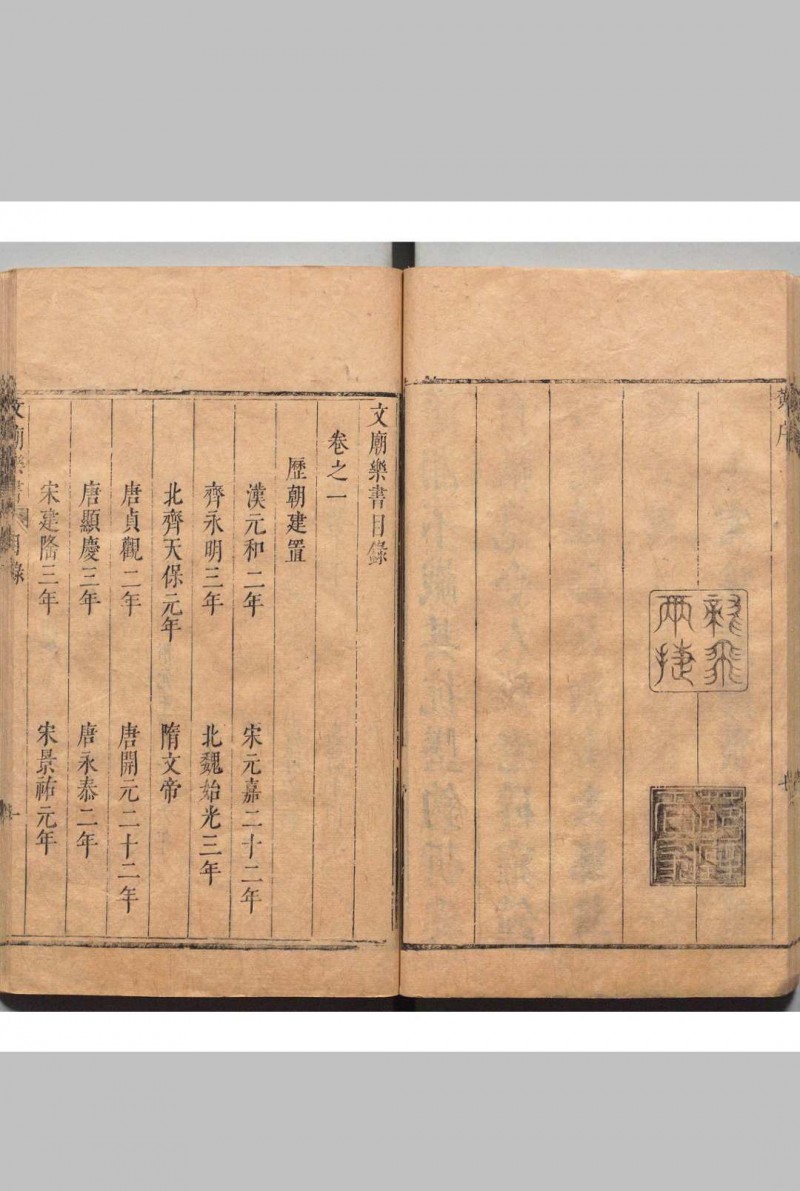 黃序
七
龍飛
兩捷
文廟樂書目錄
卷之一
歷朝建置
漢元和二年 宋元嘉二十二年
齊永明三年 北魏始光三年
北齊天保元年 隋文帝
唐貞觀二年 唐開元二十二年
唐顯慶三年 唐永泰二年
宋建隆三年 宋景祐元年
文廟樂書 目錄 一